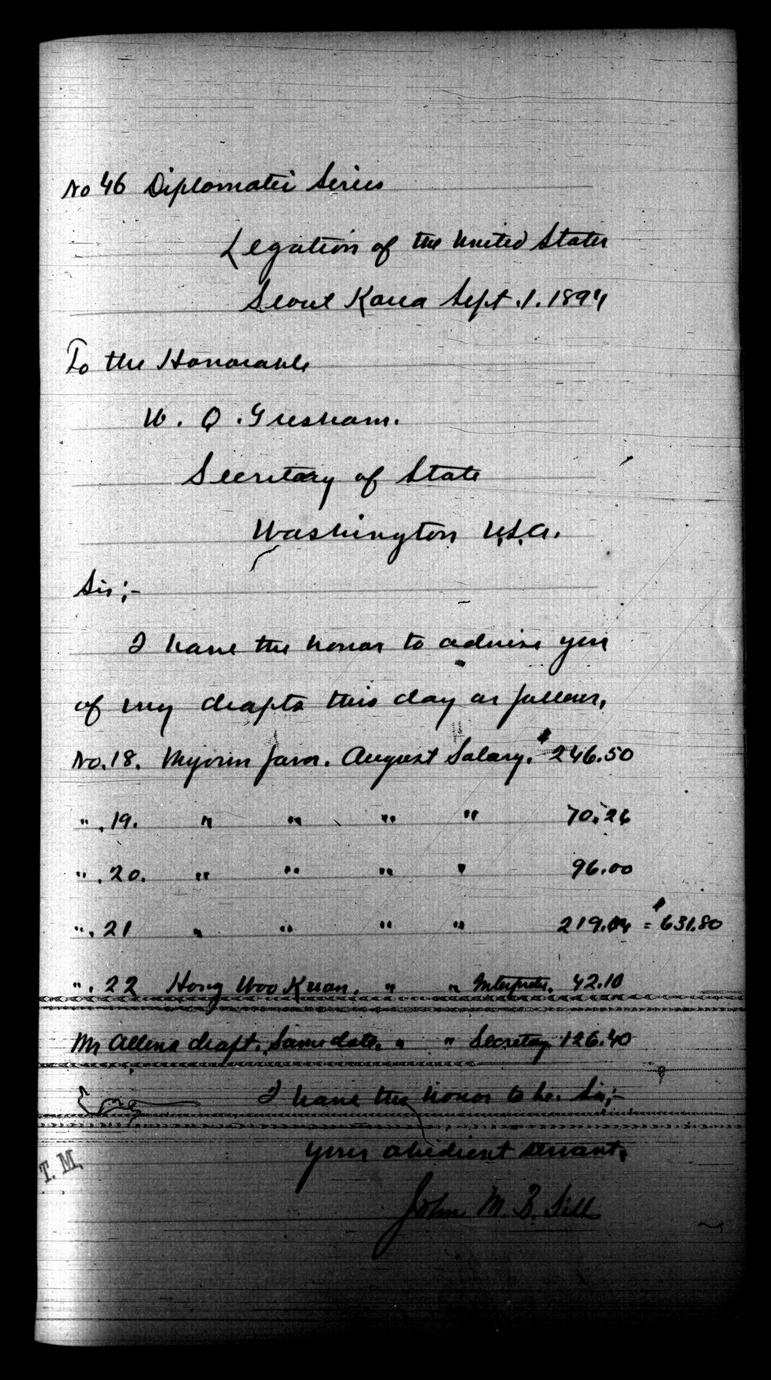 No 46 Diplomatic Series
Legation of the United States
Seoul Korea Sept. 1. 1894
To the Honorable
W. Q. Gresham.
Secretary of State
Washington U.S.A.
Sir;-
I have the honor to advise you
of my drafts this day as follows,
No. 18. My own favor. August Salary. $246.50
". 19. " " " " 70.26
". 20. " " " " 96.00
". 21 " " " " 219.04 = $631.80
". 22 Hong Woo Kuan. " " Interpreter. 42.10
Mr Allens draft. Same date. " " Secretary 126.40
I have the honor to be. Sir;-
your obedient servant,
John M. B. Sill
T. M.